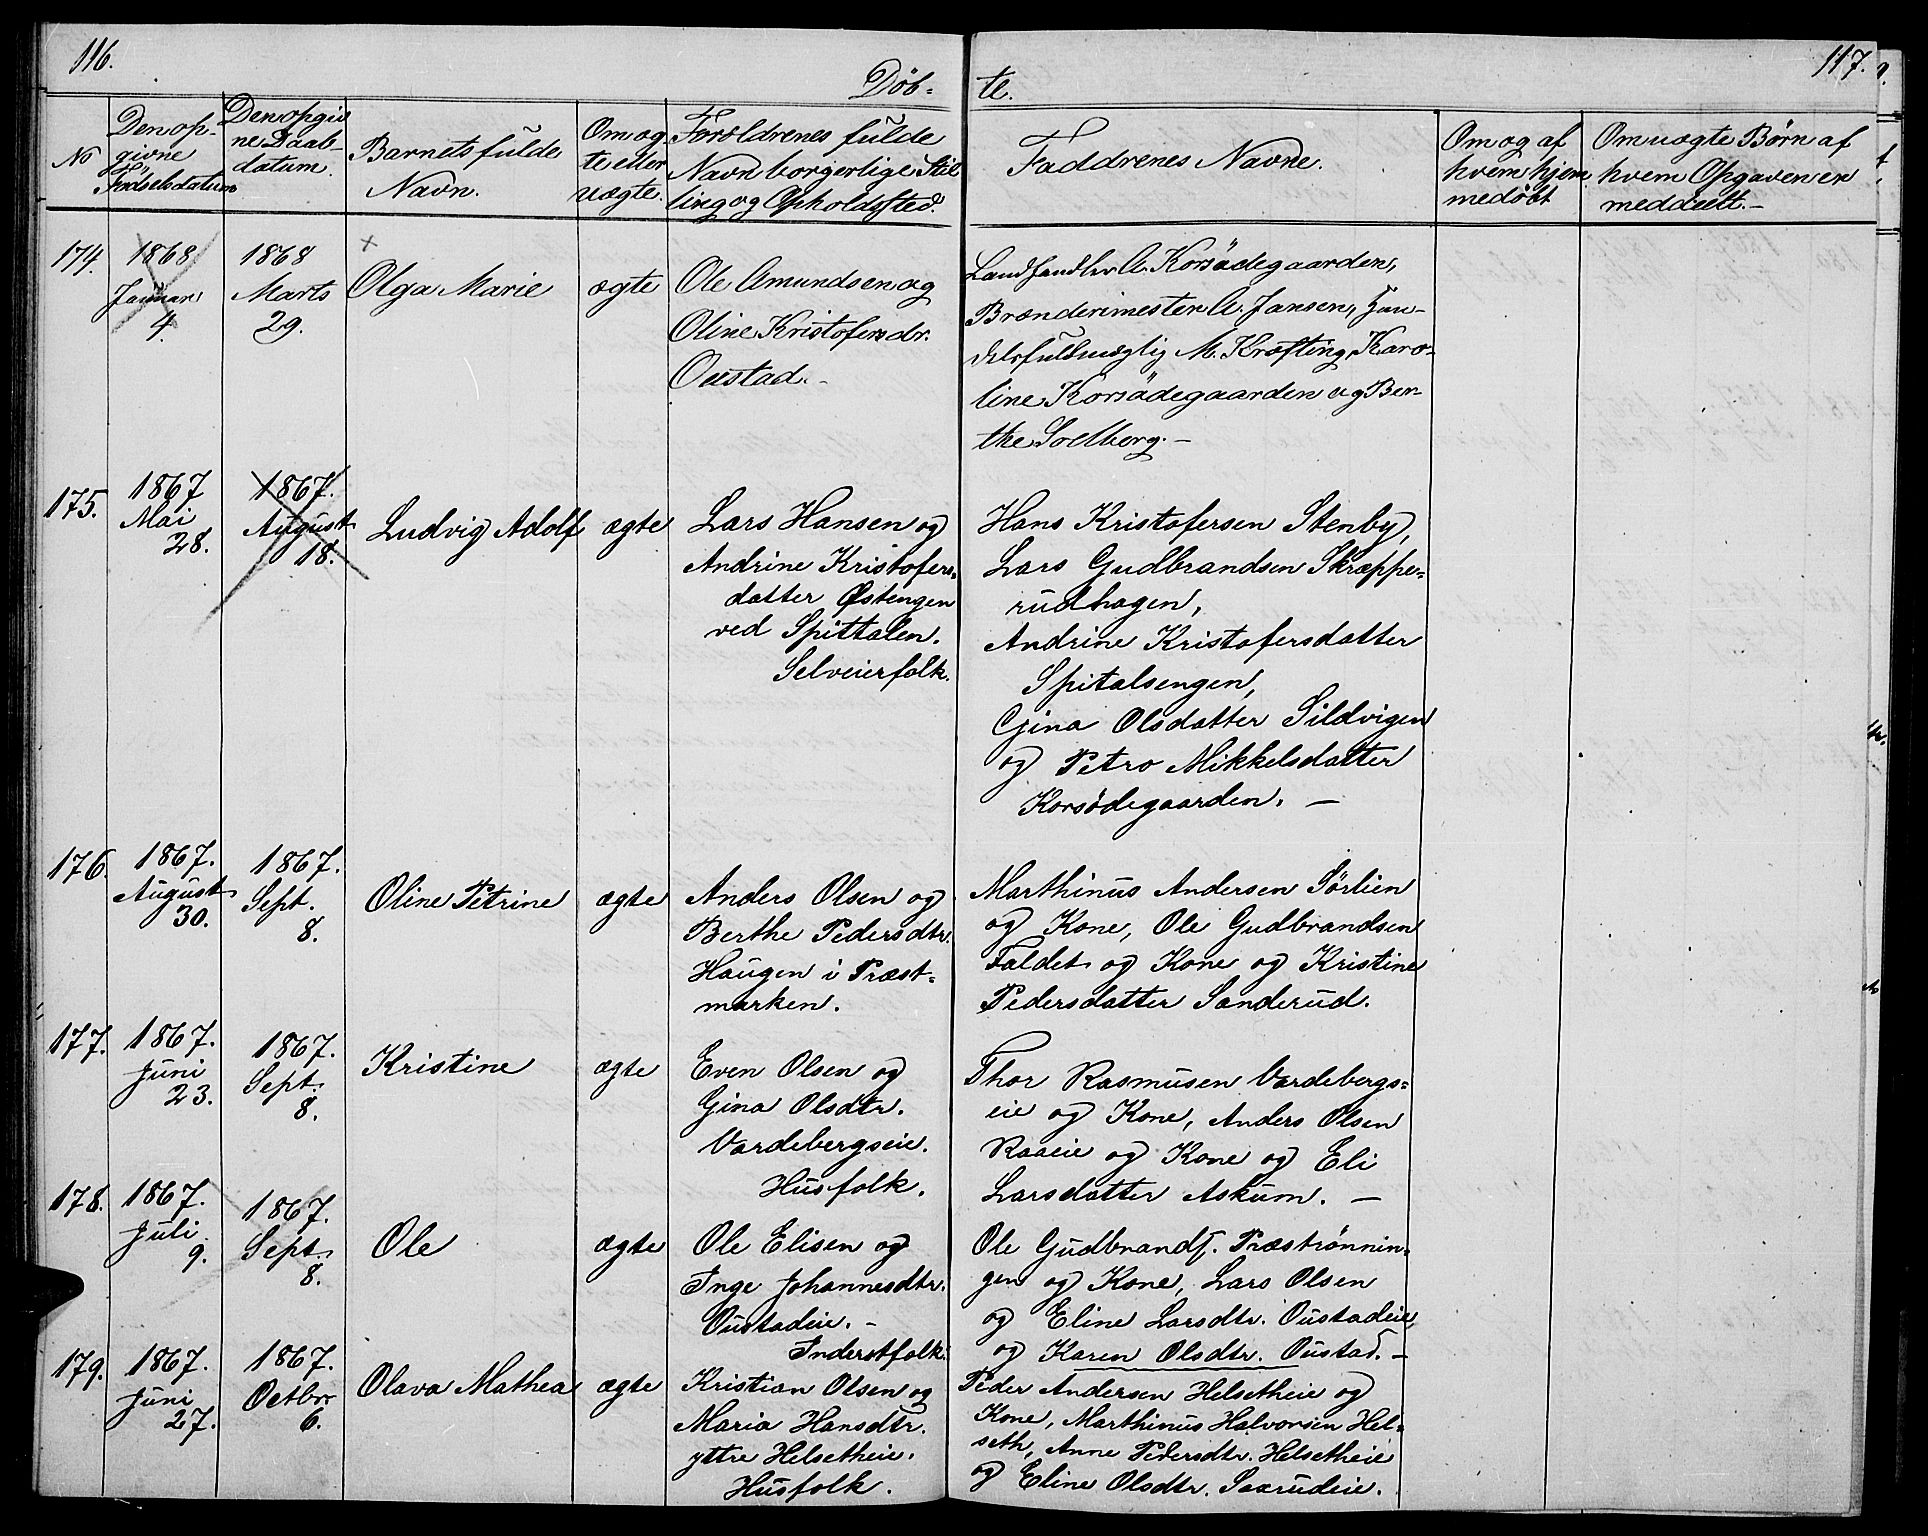 116.
117.
Døb-
te.
No
Den op-
givne
Fødselsdatum
Den opgiv
ne Daab-
datum.
Barnets fulde
Navn.
Om æg
te eller
uægte.
Forældrenes fulde
Navn borgerlige Stil
ling og Opholdssted.
Faddrenes Navne.
Om og af
hvem hjem
medøbt
Om uægte Børn af
hvem Opgaven er
meddeelt.-
174.
1868
Januar
4.
1868
Marts
29.
Olga Marie
ægte
Ole Amundsen og
Oline Kristofersdr.
Oustad.-
Landhandler A. Korsødegaarden,
Brænderimester A. Jansen, Han-
delsfuldmægtig M. Krafting, Karo-
line Korsødegaarden og Ber-
the Solberg.-
175.
1867
Mai
28.
1867.
August
18.
Ludvig Adolf
ægte
Lars Hansen og
Andrine Kristofers-
datter Østengen
ved Spittalen.
Selveierfolk.
Hans Kristofersen Stenby,
Lars Gudbrandsen Skræppe-
rudhagen,
Andrine Kristofersdatter
Spitalsengen,
Gina Olsdatter Sildvigen
og Petra Mikkelsdatter
Korsødegaarden. -
176.
1867.
August
30.
1867.
Sept.
8.
Oline Petrine
ægte
Anders Olsen og
Berthe Pedersdtr.
Haugen i Præst-
marken.
Marthinus Andersen Sørlien
og Kone, Ole Gudbrandsen
Faldet og Kone og Kristine
Pedersdatter Sanderud.
177.
1867.
Juni
23.
1867.
Sept.
8.
Kristine
ægte
Even Olsen og
Gina Olsdtr.
Vardebergseie.
Husfolk.
Thor Rasmusen Vardebergs-
eie og Kone, Anders Olsen
Raaeie og Kone og Eli
Larsdatter Askum. -
178.
1867.
Juli
9.
1867.
Sept.
8.
Ole
ægte
Ole Elisen og
Inge Johannesdtr.
Oustadeie. -
Inderstfolk.
Ole Gudbrands. Præstrønnin-
gen og Kone, Lars Olsen
og Eline Larsdtr. Oustadeie
og Karen Olsdtr. Oustad. -
179.
1867.
Juni
27.
1867.
Octbr.
6.
Olava Mathea
ægte
Kristian Olsen og
Maria Hansdtr.
yttre Helsetheie.
Husfolk.
Peder Andersen Helsetheie og
Kone, Marthinus Halvorsen Hel-
seth, Anne Pedersdtr. Helsetheie
og Eline Olsdtr. Saarudeie.